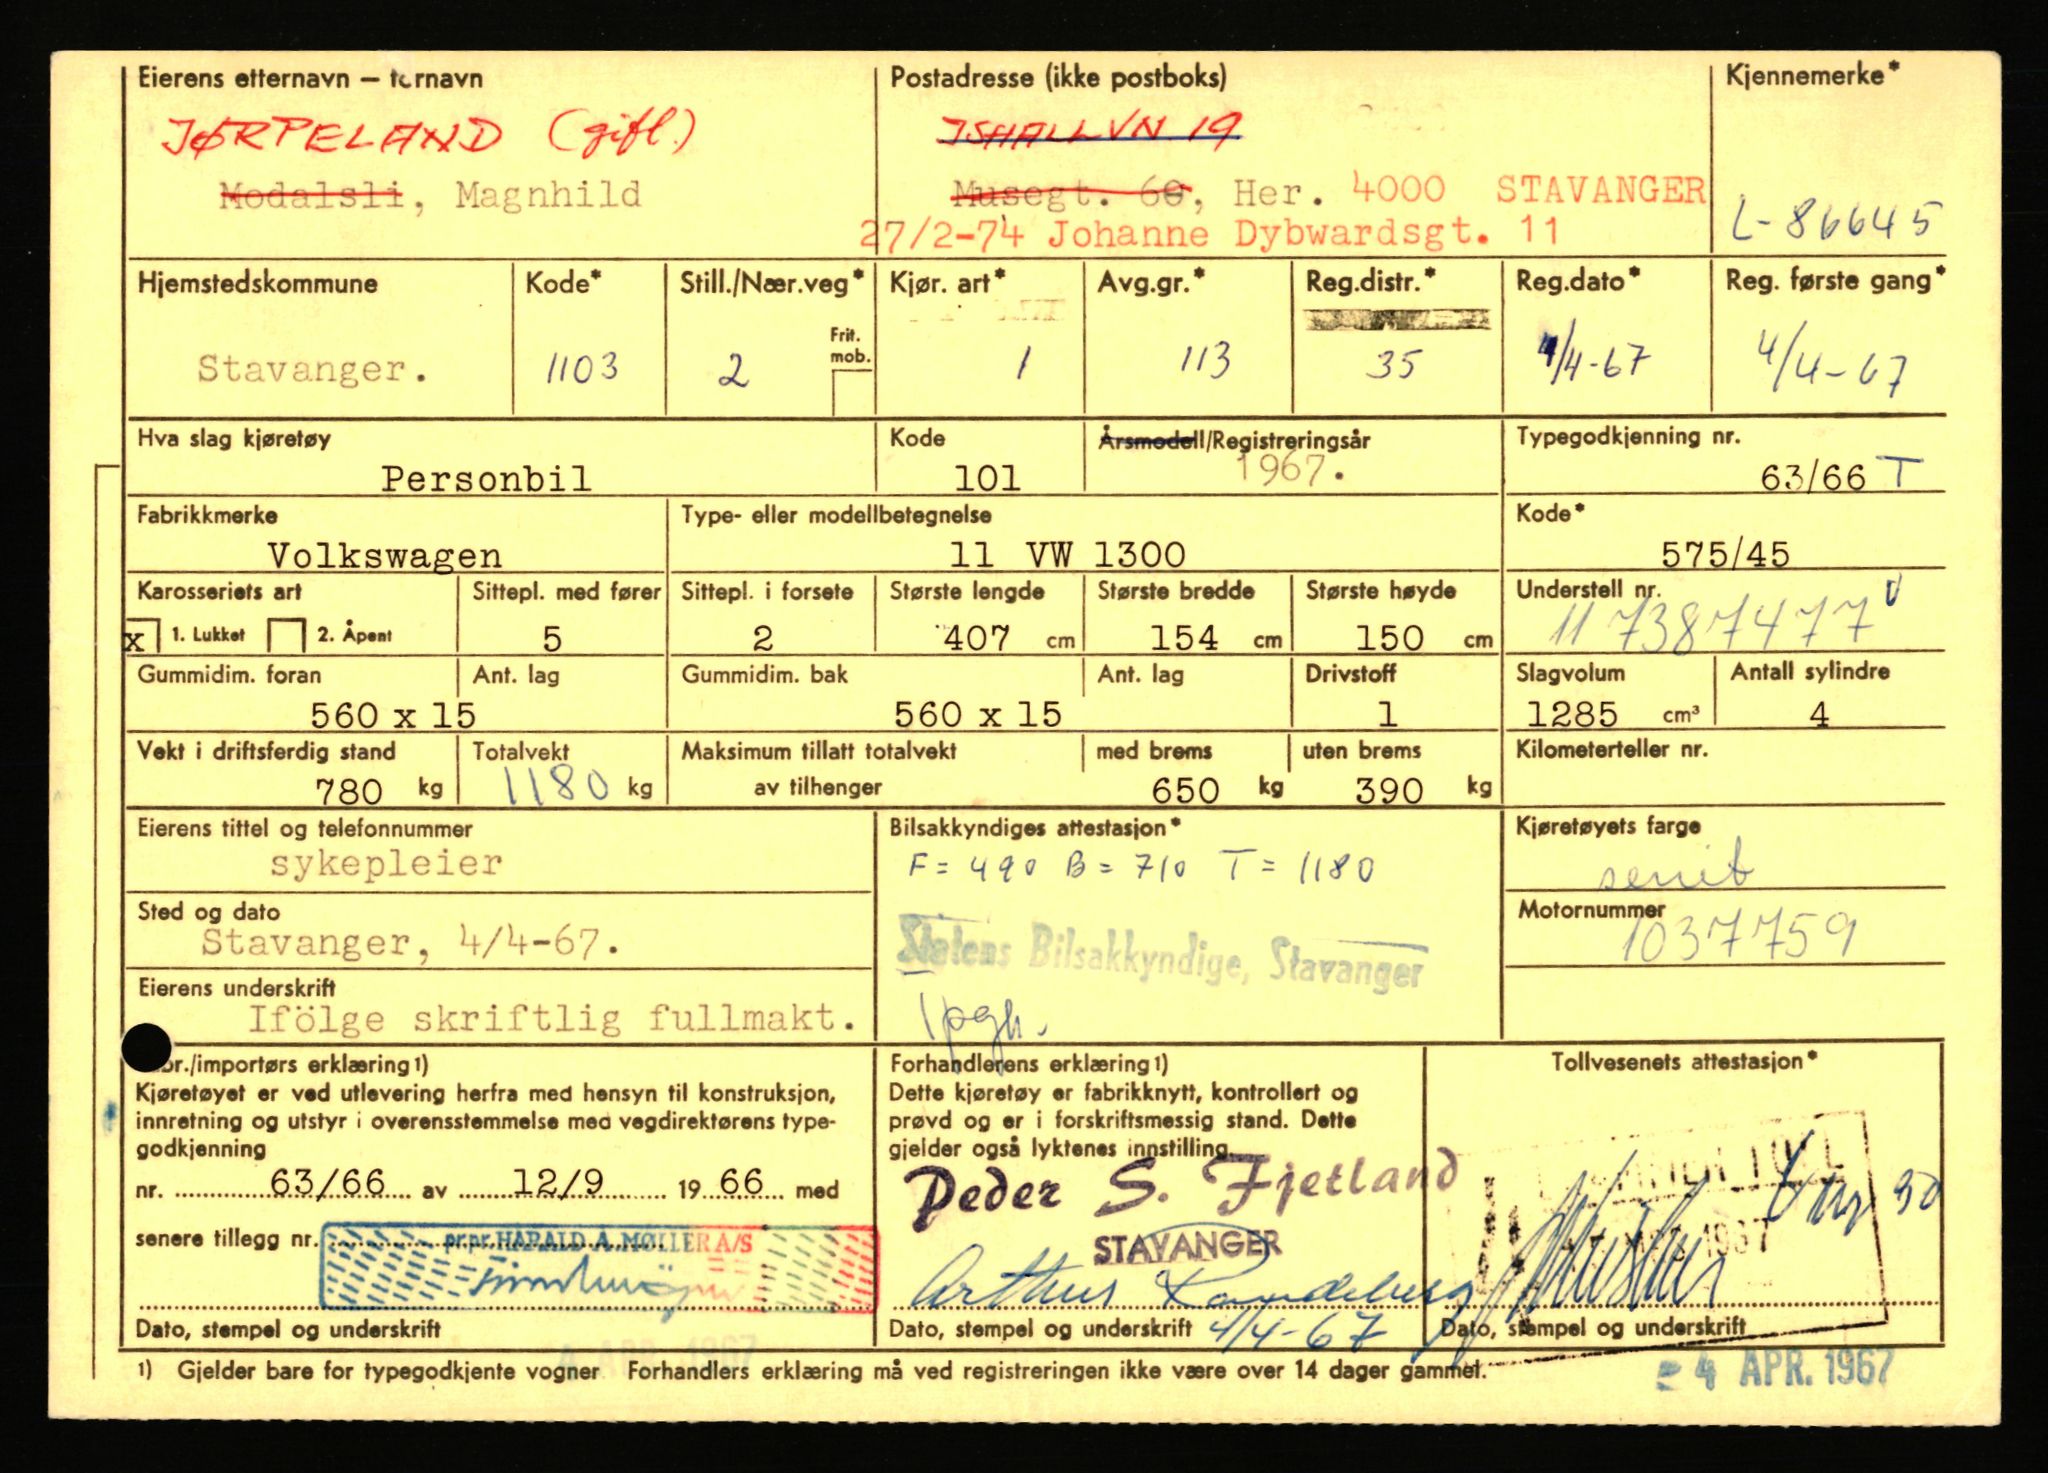 Eierens etternavn – fornavn
Postadresse (ikke postboks)
Kjennemerke*
JØRPELAND (gift.)
ISHALLVN 19
Modalsli, Magnhild
Musegt. 60, Her. 4000 STAVANGER
27/2-74 Johanne Dybwardsgt. 11
L-86645
Hjemstedskommune
Kode*
Still./Nær.veg*
Kjør. art*
Avg.gr.*
Reg.distr.*
Reg.dato*
Reg. første gang*
Frit. mob.
Stavanger.
1103
2
1
113
35
4/4-67
4/4-67
Hva slag kjøretøy
Kode
Årsmodell/Registreringsår
Typegodkjenning nr.
Personbil
101
1967.
63/66 T
Fabrikkmerke
Type- eller modellbetegnelse
Kode*
Volkswagen
11 VW 1300
575/45
Karosseriets art
Sittepl. med fører
Sittepl. i forsete
Største lengde
Største bredde
Største høyde
Understell nr.
x 1. Lukket 2. Åpent
5
2
407 cm
154 cm
150 cm
117387477
Gummidim. foran
Ant. lag
Gummidim. bak
Ant. lag
Drivstoff
Slagvolum
Antall sylindre
560 x 15
560 x 15
1
1285 cm³
4
Vekt i driftsferdig stand
Totalvekt
Maksimum tillatt totalvekt
med brems
uten brems
Kilometerteller nr.
780 kg
1180 kg
av tilhenger
650 kg
390 kg
Eierens tittel og telefonnummer
Bilsakkyndiges attestasjon*
Kjøretøyets farge
sykepleier
F = 490 B = 710 T = 1180
Sted og dato
Motornummer
Stavanger, 4/4-67.
Statens Bilsakkyndige, Stavanger
1037759
Eierens underskrift
Ifölge skriftlig fullmakt.
br./importørs erklæring 1)
Kjøretøyet er ved utlevering herfra med hensyn til konstruksjon,
innretning og utstyr i overensstemmelse med vegdirektørens type-
godkjenning
nr. 63/66 av 12/9 1966 med
senere tillegg nr.
pr.pr. HARALD A. MØLLER A/S
Dato, stempel og underskrift
Forhandlerens erklæring 1)
Dette kjøretøy er fabrikknytt, kontrollert og
prøvd og er i forskriftsmessig stand. Dette
gjelder også lyktenes innstilling.
Peder S. Fjetland
STAVANGER
Arthur
Dato, stempel og underskrift 4/4-67
Tollvesenets attestasjon*
1967
Dato, stempel og underskrift
1) Gjelder bare for typegodkjente vogner Forhandlers erklæring må ved registreringen ikke være over 14 dager gammel.
- 4 APR. 1967